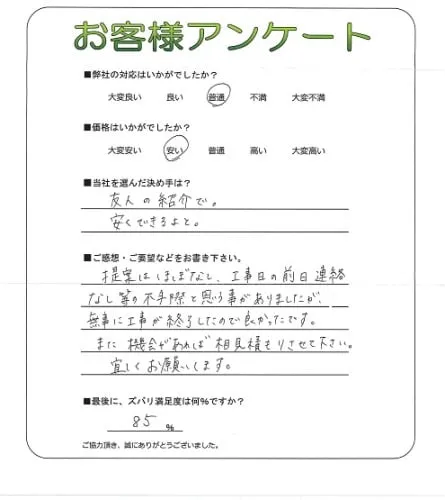 お客様アンケート
■弊社の対応はいかがでしたか？
大変良い 良い 普通 不満 大変不満
■価格はいかがでしたか？
大変安い 安い 普通 高い 大変高い
■当社を選んだ決め手は？
友人の紹介で。
安くできるよと。
■ご感想・ご要望などをお書き下さい。
提案はほぼなし、工事日の前日連絡
なし等の不手際と思う事がありましたが、
無事に工事が終了したので良かったです。
また機会があれば相見積もりさせて下さい。
宜しくお願いします。
■最後に、ズバリ満足度は何%ですか？
85 %
ご協力頂き、誠にありがとうございました。